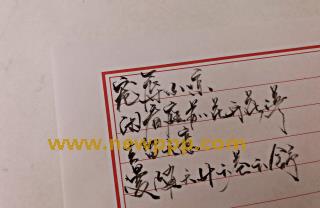 宠辱不惊
闲看庭前花开花落
www.newppp.com
去留无意
漫随天外云卷云舒